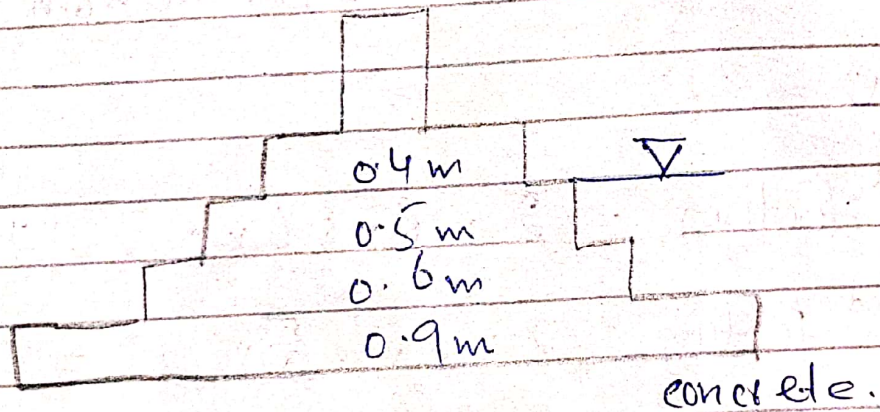 0.4 m
0.5 m
0.6 m
0.9 m
concrete.